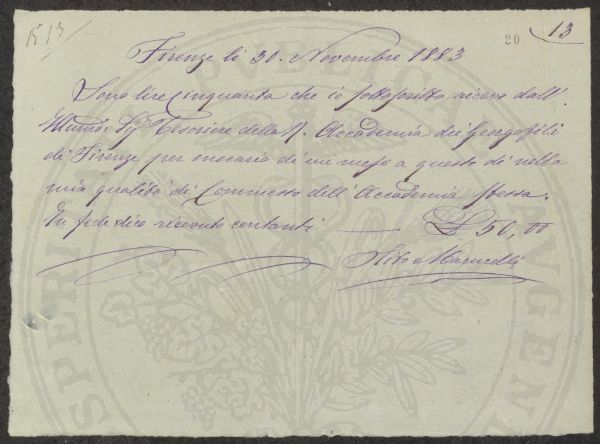 N 13
20
13
Firenze li 30. Novembre 1883
Sono lire Cinquanta che io sottoscritto ricevo dall'
Illmo: Sig Tesoriere della R. Accademia dei Georgofili
di Firenze per onorario di un mese a questo dì nella
mia qualità di Commesso dell'Accademia stessa.
In fede dico ricevuto contanti — £ 50,00
Marucelli